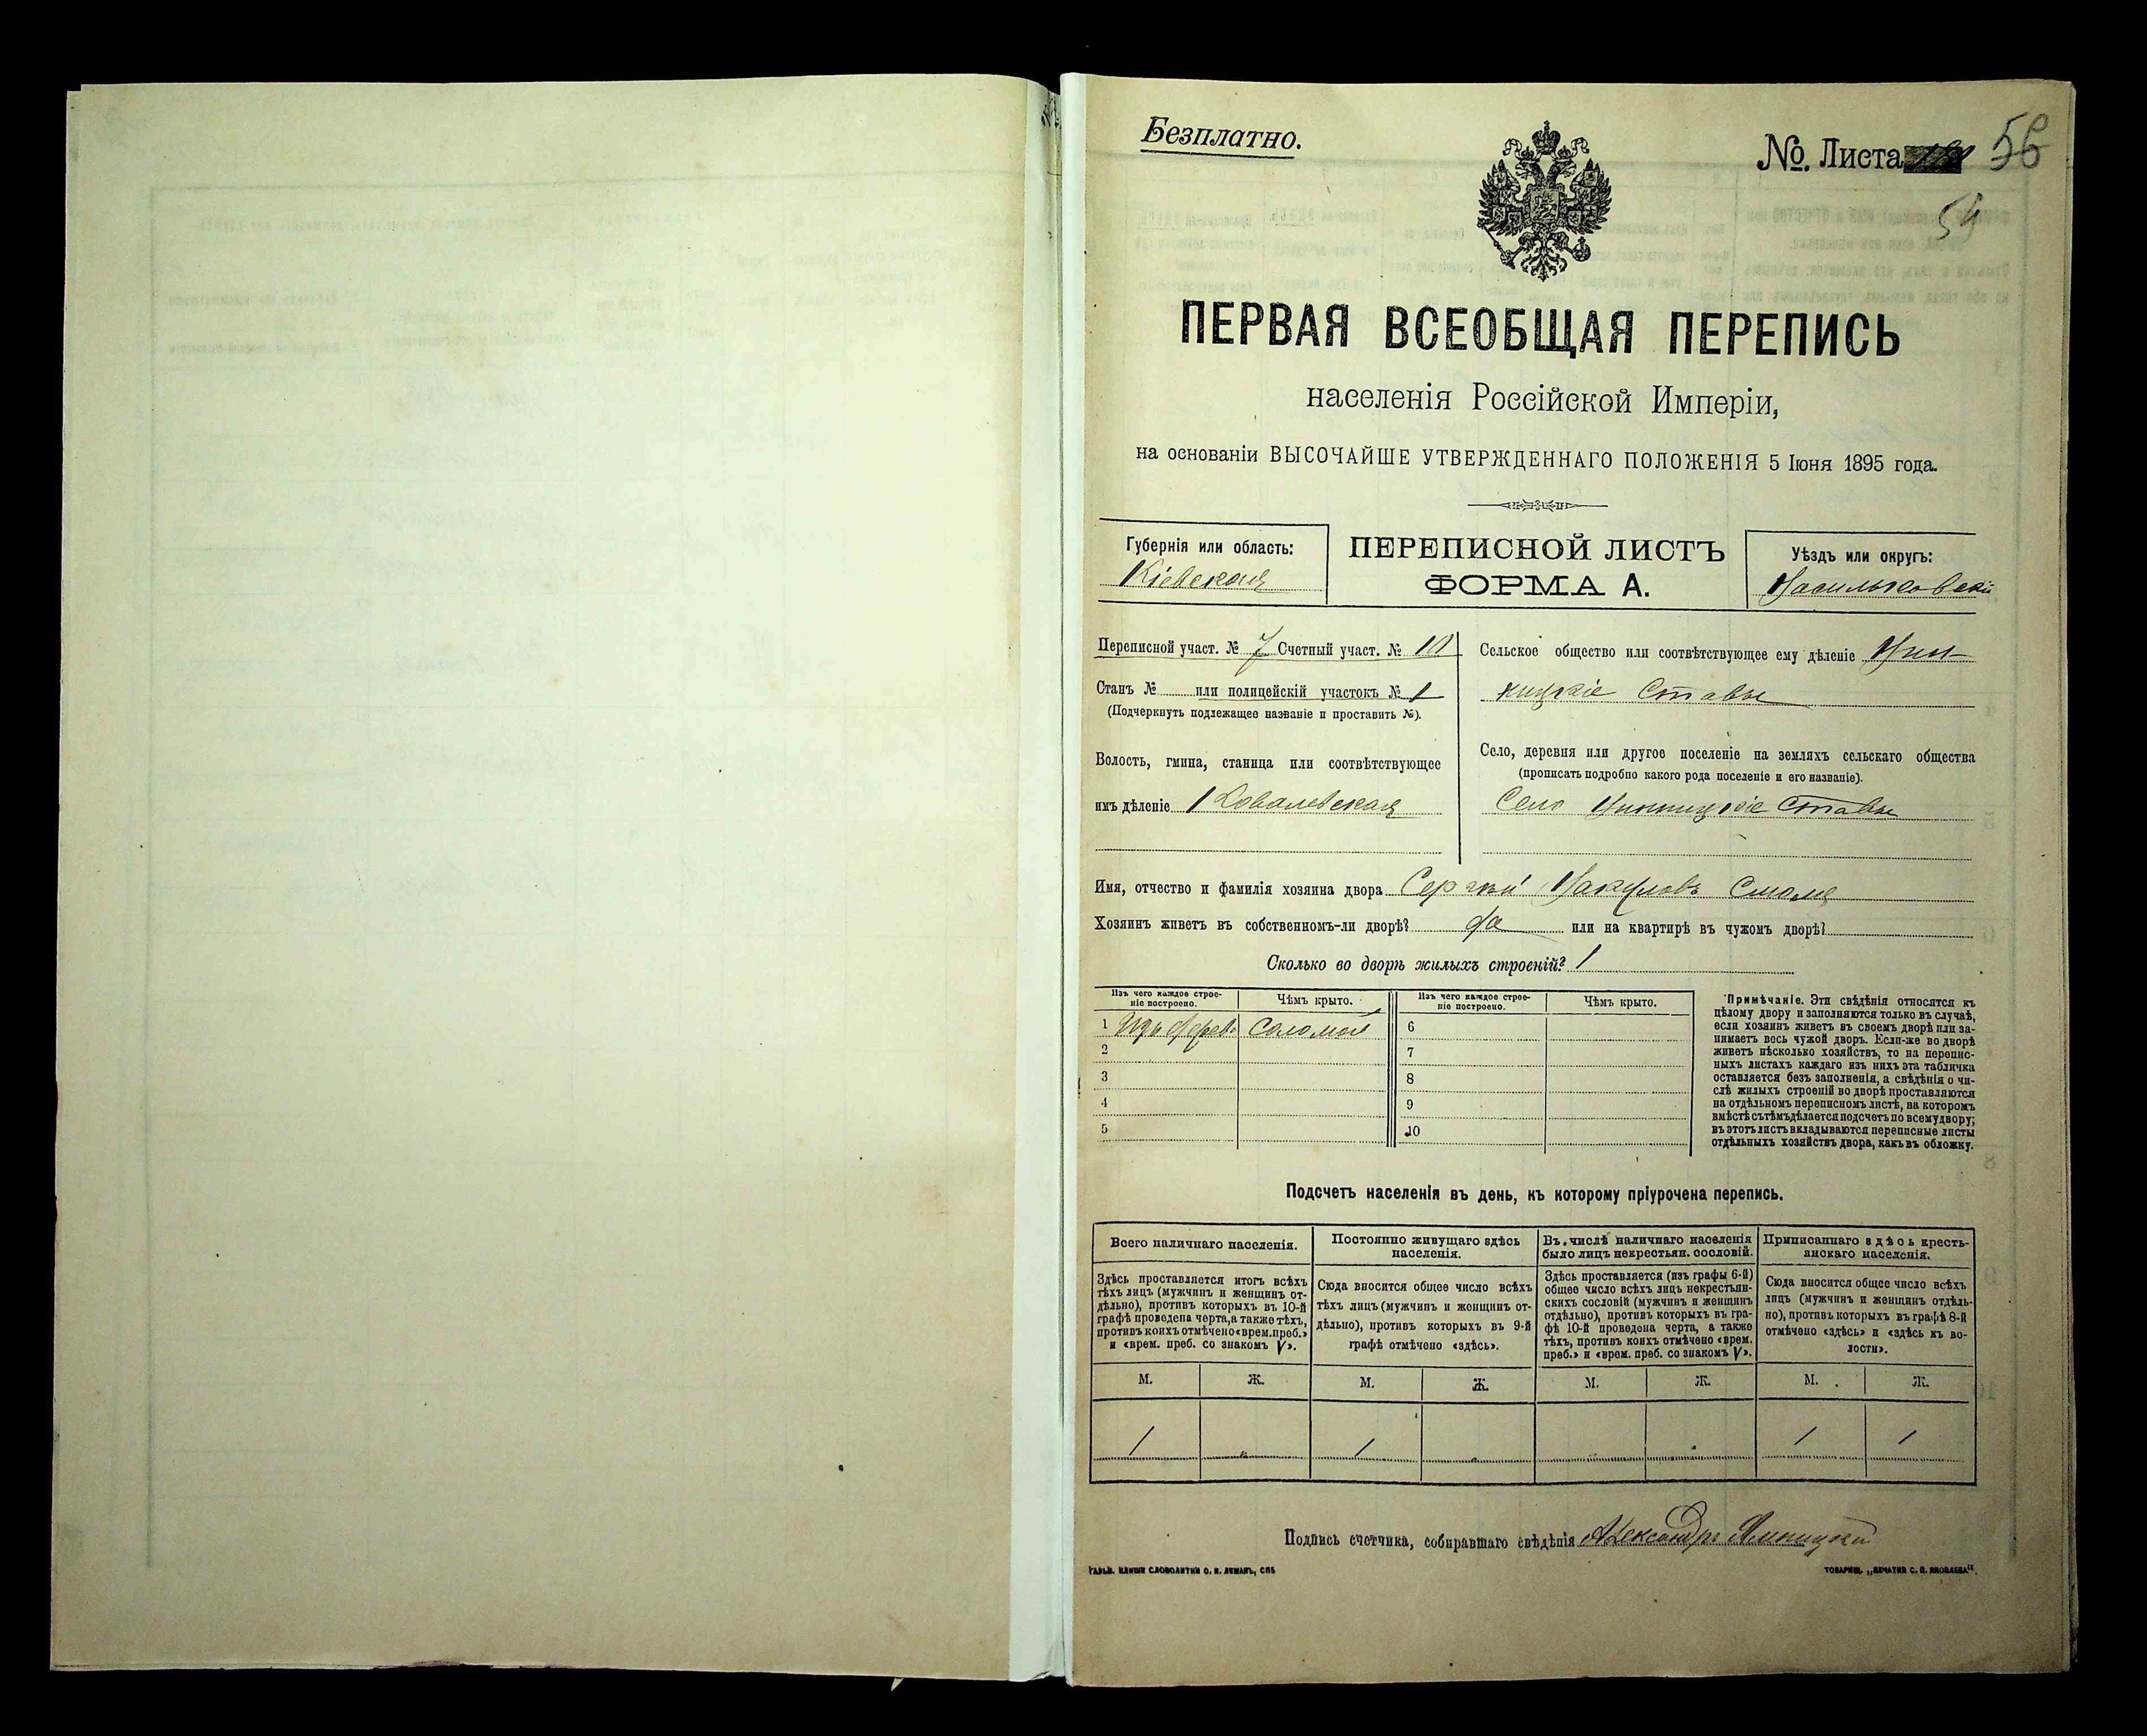 Безплатно.
№ Листа 56
54
ПЕРВАЯ ВСЕОБЩАЯ ПЕРЕПИСЬ
населенія Россійской Имперіи,
на основаніи ВЫСОЧАЙШЕ УТВЕРЖДЕННАГО ПОЛОЖЕНІЯ 5 Іюня 1895 года.
Губернія или область:
Кіевская
ПЕРЕПИСНОЙ ЛИСТЪ
ФОРМА А.
Уѣздъ или округъ:
Васильковскій
Переписной участ. № 7 Счетный участ. №
Станъ № или полицейскій участокъ № 1
(Подчеркнуть подлежащее названіе и проставить №).
Волость, гмина, станица или соотвѣтствующее
имъ дѣленіе Ковалевская
Сельское общество или соотвѣтствующее ему дѣленіе Вин-
ницкіе Ставы
Село, деревня или другое поселеніе на земляхъ сельскаго общества
(прописать подробно какого рода поселеніе и его названіе).
Село Винницкіе Ставы
Имя, отчество и фамилія хозяина двора Сергѣй Вакуловъ
Хозяинъ живетъ въ собственномъ-ли дворѣ? да или на квартирѣ въ чужомъ дворѣ?
Сколько во дворѣ жилыхъ строеній? 1
Изъ чего каждое строе-
ніе построено.
Чѣмъ крыто.
Изъ чего каждое строе-
ніе построено.
Чѣмъ крыто.
1 Изъ дерева Соломой
2
3
4
5
6
7
8
9
10
Примѣчаніе. Эти свѣдѣнія относятся къ
цѣлому двору и заполняются только въ случаѣ,
если хозяинъ живетъ въ своемъ дворѣ или за-
нимаетъ весь чужой дворъ. Если-же во дворѣ
живетъ нѣсколько хозяйствъ, то на перепис-
ныхъ листахъ каждаго изъ нихъ эта табличка
оставляется безъ заполненія, а свѣдѣнія о чи-
слѣ жилыхъ строеній во дворѣ проставляются
на отдѣльномъ переписномъ листѣ, на которомъ
вмѣстѣ съ тѣмъ дѣлается подсчетъ по всему двору;
въ этотъ листъ вкладываются переписные листы
отдѣльныхъ хозяйствъ двора, какъ въ обложку.
Подсчетъ населенія въ день, къ которому пріурочена перепись.
Всего наличнаго населенія.
Здѣсь проставляется итогъ всѣхъ
тѣхъ лицъ (мужчинъ и женщинъ от-
дѣльно), противъ которыхъ въ 10-й
графѣ проведена черта, а также тѣхъ,
противъ коихъ отмѣчено «врем. преб.»
и «врем. преб. со знакомъ V».
Постоянно живущаго здѣсь
населенія.
Сюда вносится общее число всѣхъ
тѣхъ лицъ (мужчинъ и женщинъ от-
дѣльно), противъ которыхъ въ 9-й
графѣ отмѣчено «здѣсь».
Въ числѣ наличнаго населенія
было лицъ некрестьян. сословій.
Здѣсь проставляется (изъ графы 6-й)
общее число всѣхъ лицъ некрестьян-
скихъ сословій (мужчинъ и женщинъ
отдѣльно), противъ которыхъ въ гра-
фѣ 10-й проведена черта, а также
тѣхъ, противъ коихъ отмѣчено «врем.
преб.» и «врем. преб. со знакомъ V».
Приписаннаго здѣсь кресть-
янскаго населенія.
Сюда вносится общее число всѣхъ
лицъ (мужчинъ и женщинъ отдѣль-
но), противъ которыхъ въ графѣ 8-й
отмѣчено «здѣсь» и «здѣсь къ во-
лости».
М. Ж. М. Ж. М. Ж. М. Ж.
1 „ 1 „ „ „ 1 1
Подпись счетчика, собиравшаго свѣдѣнія Александръ
ГАЛЬВ. КЛИШЕ СЛОВОЛИТНИ О. И. ЛЕМАНЪ, СПБ
ТОВАРИЩ. „ПЕЧАТНЯ С. П. ЯКОВЛЕВА“.